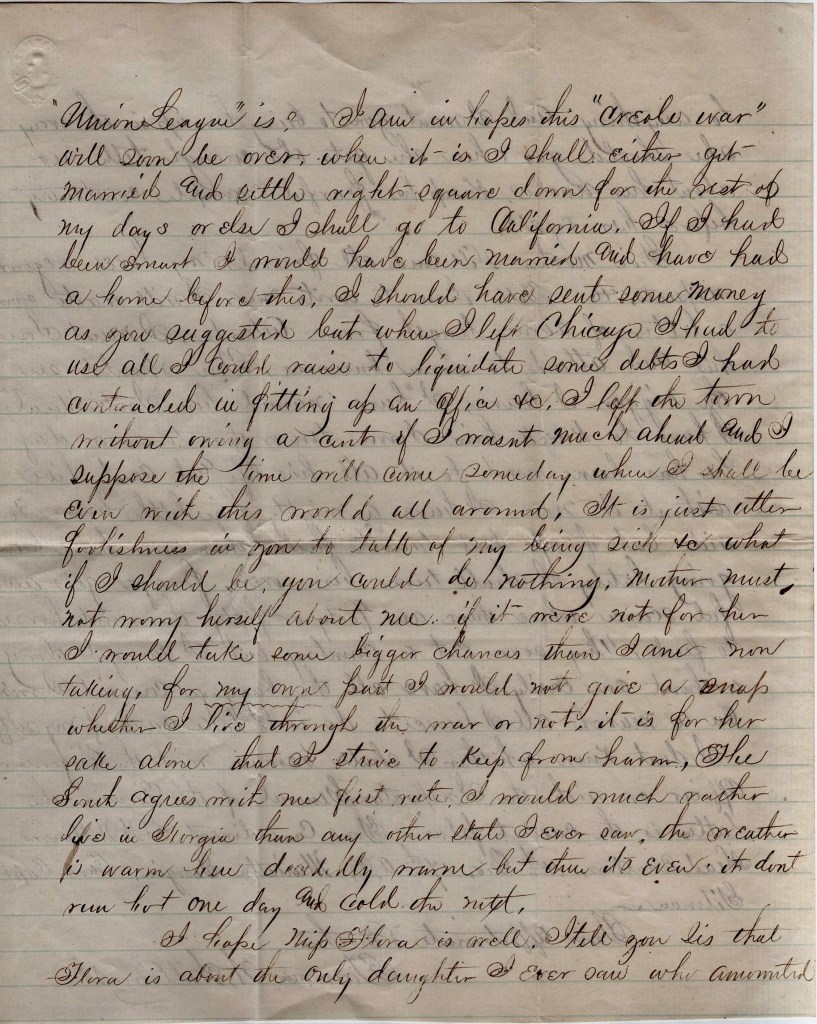 "Union League" is? I am in hopes this "creole war"
will soon be over, when it is I shall either get
married and settle right square down for the rest of
my days or else I shall go to California. If I had
been smart I would have been married and have had
a home before this. I should have sent some money
as you suggested but when I left Chicago I had to
use all I could raise to liquidate some debts I had
contracted in fitting up an office &c. I left the town
without owing a cent if I wasnt much ahead and I
suppose the time will come someday when I shall be
even with this world all around. It is just utter
foolishness in you to talk of my being sick &c what
if I should be, you could do nothing. Mother must
not worry herself about me. if it were not for her
I would take some bigger chances than I am now
taking, for my own part I would not give a snap
whether I live through the war or not, it is for her
sake alone that I strive to keep from harm. The
South agrees with me first rate. I would much rather
live in Georgia than any other state I ever saw, the weather
is warm here decidedly warm but then its even. it dont
run hot one day and cold the next.
I hope Miss Flora is well. I tell you Sis that
Flora is about the only daughter I ever saw who amounted